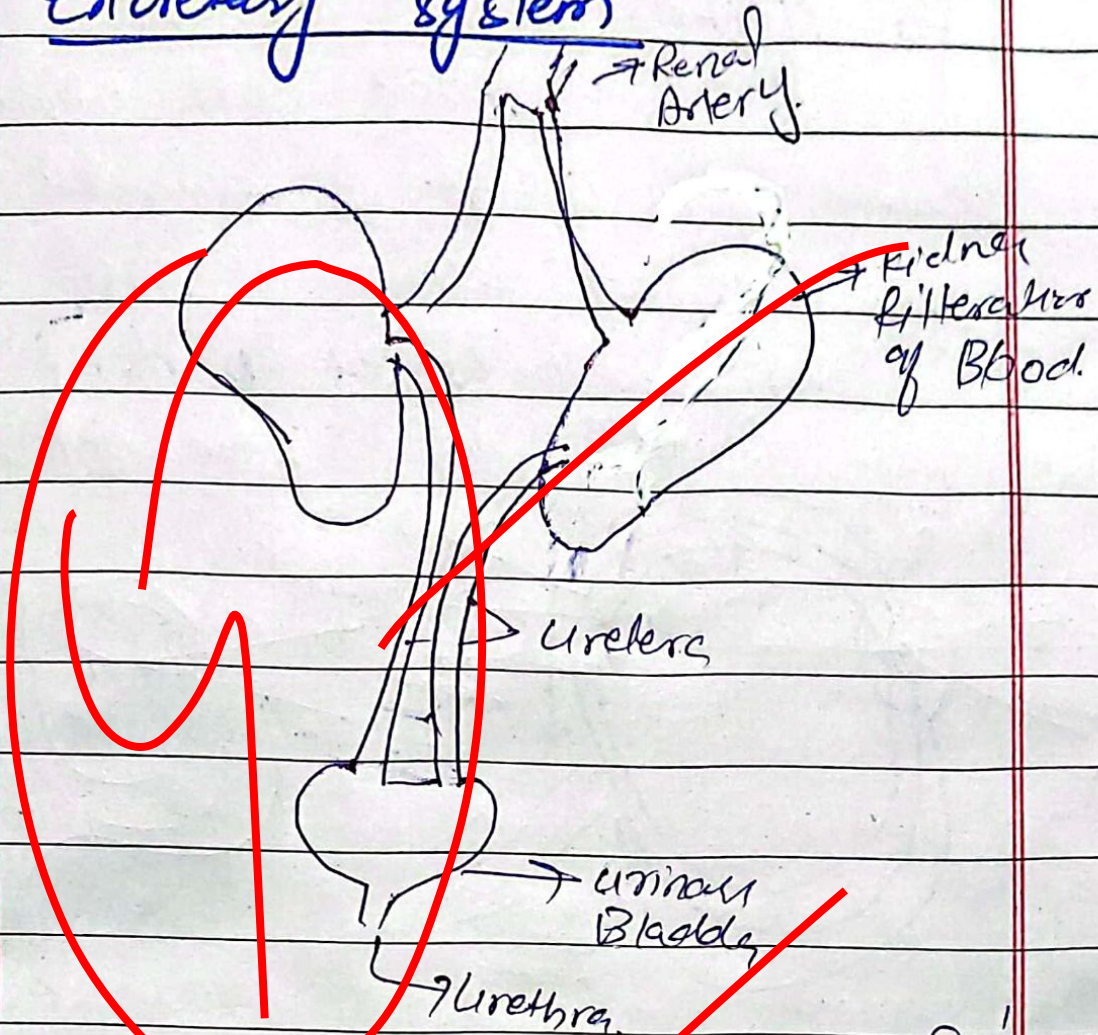 system
Renal
Artery.
Kidney
filteration
of Blood.
ureters
urinary
Bladder
Urethra.